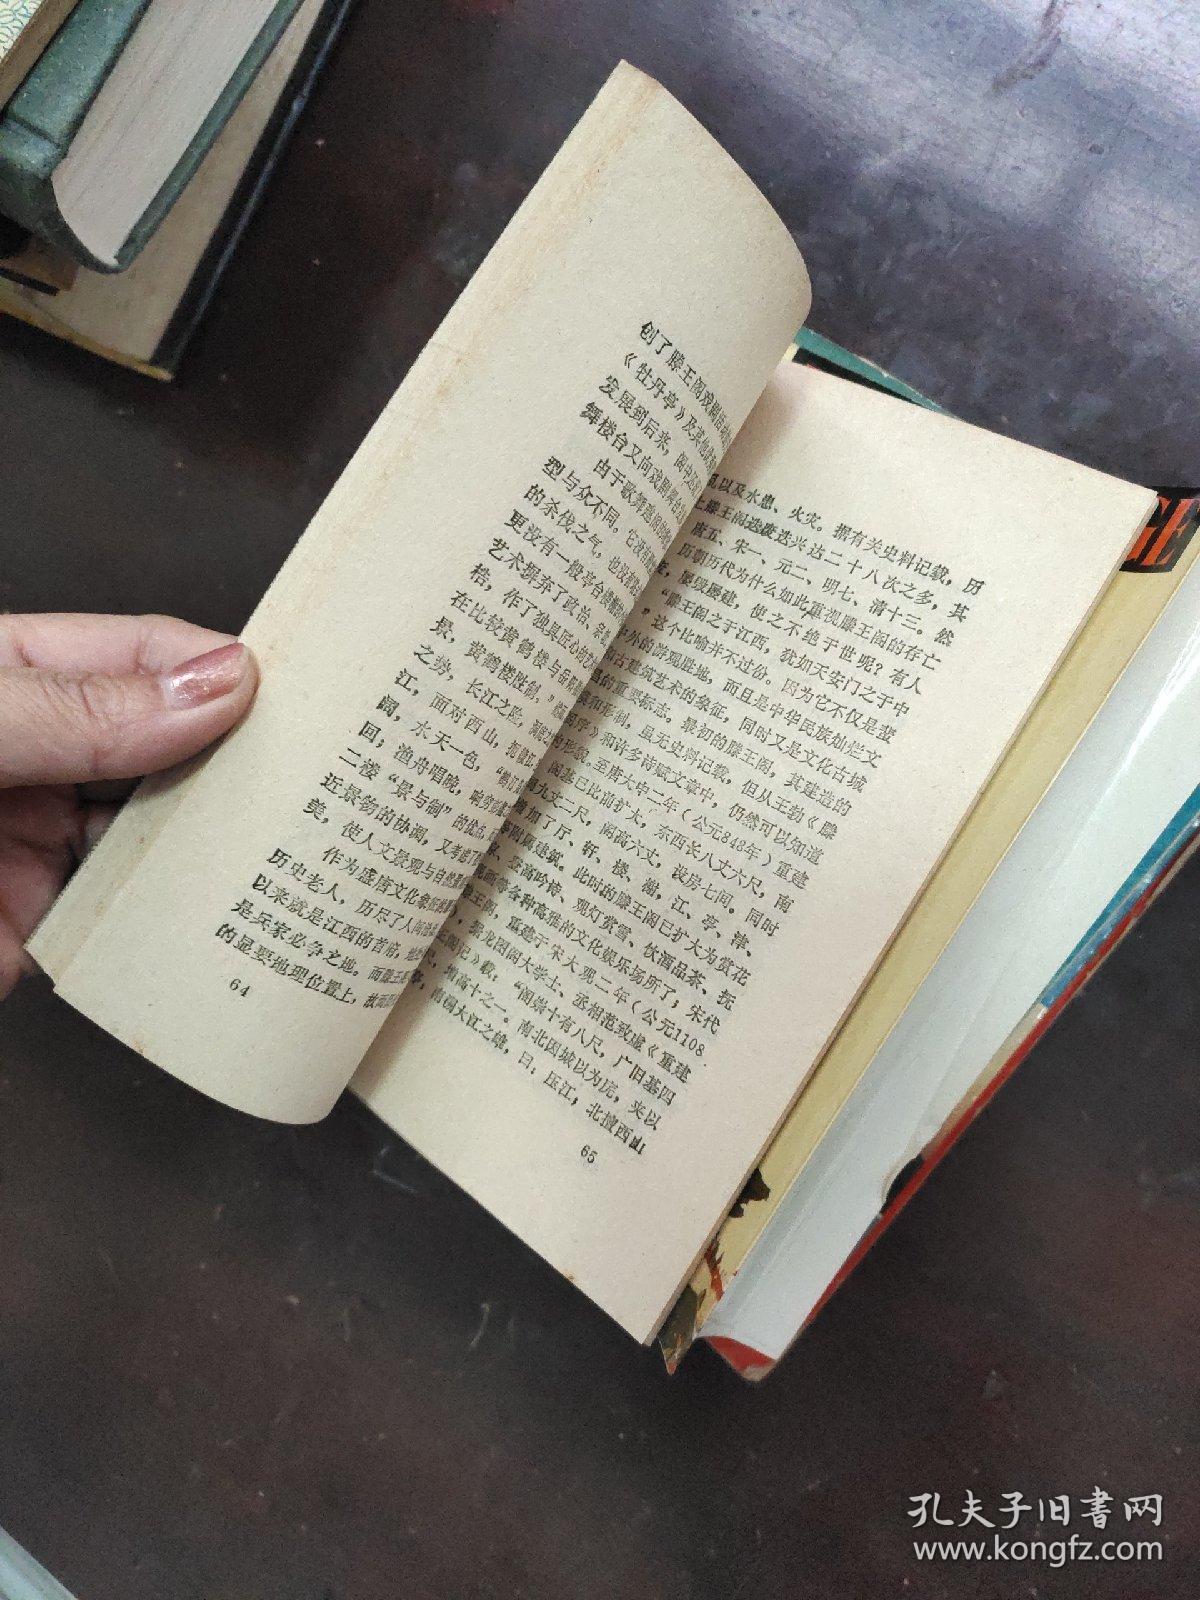 创了滕王阁戏剧活动
《牡丹亭》及其他
发展到后来，阁中
舞楼台又向戏剧舞台
由于歌舞
型与众不同。它没有
的杀伐之气，也没有
更没有一般亭台楼
艺术摒弃了政治、宗
梏，作了独具匠心的艺
在比较黄鹤楼与岳阳
景，黄鹤楼胜制，”
之势，长江之险，洞庭
江，面对西山，扼赣江
阔，水天一色，
回，渔舟唱晚，响穷
二楼“景与制”的优点，
近景物的协调，又考虑了
美，使人文景观与自然景
作为盛唐文化象征
历史老人，历尽了人间沧
以来就是江西的首府，地
是兵家必争之地。而滕王
的显要地理位置上，故而
64
乱以及水患、火灾。据有关史料记载，历
上滕王阁迭废迭兴达二十八次之多，其
唐五、宋一、元二、明七、清十三。然
历朝历代为什么如此重视滕王阁的存亡
屡毁屡建，使之不绝于世呢？有人
“滕王阁之于江西，犹如天安门之于中
，这个比喻并不过份。因为它不仅是蜚
中外的游观胜地，而且是中华民族灿烂文
和古建筑艺术的象征，同时又是文化古城
昌的重要标志。最初的滕王阁，其建造的
模和形制，虽无史料记载，但从王勃《滕
阁序》和许多诗赋文章中，仍然可以知道
的形貌。至唐大中二年（公元848年）重建
阁基已比前扩大，东西长八丈六尺，南
阔九丈二尺，阁高六丈，设房七间。同时
增加了厅、轩、楼、榭，江、亭、津、
等附属建筑。此时的滕王阁已扩大为赏花
、登高吟诗、观灯赏雪、饮酒品茶、抚
画等各种高雅的文化娱乐场所了；宋代
滕王阁，重建于宋大观二年（公元1108
，据龙图阁大学士、丞相范致虚《重建
王阁记》载：“阁崇十有八尺，广旧基四
，增高十之一。南北因城以为庑，夹以
亭，南溯大江之雄，曰：压江；北擅西山
65
GE
孔夫子旧书网
www.kongfz.com